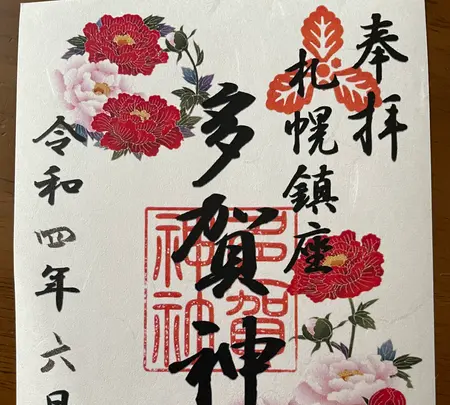 奉拝
札幌鎮座
多賀神
多賀神社
令和四年六月